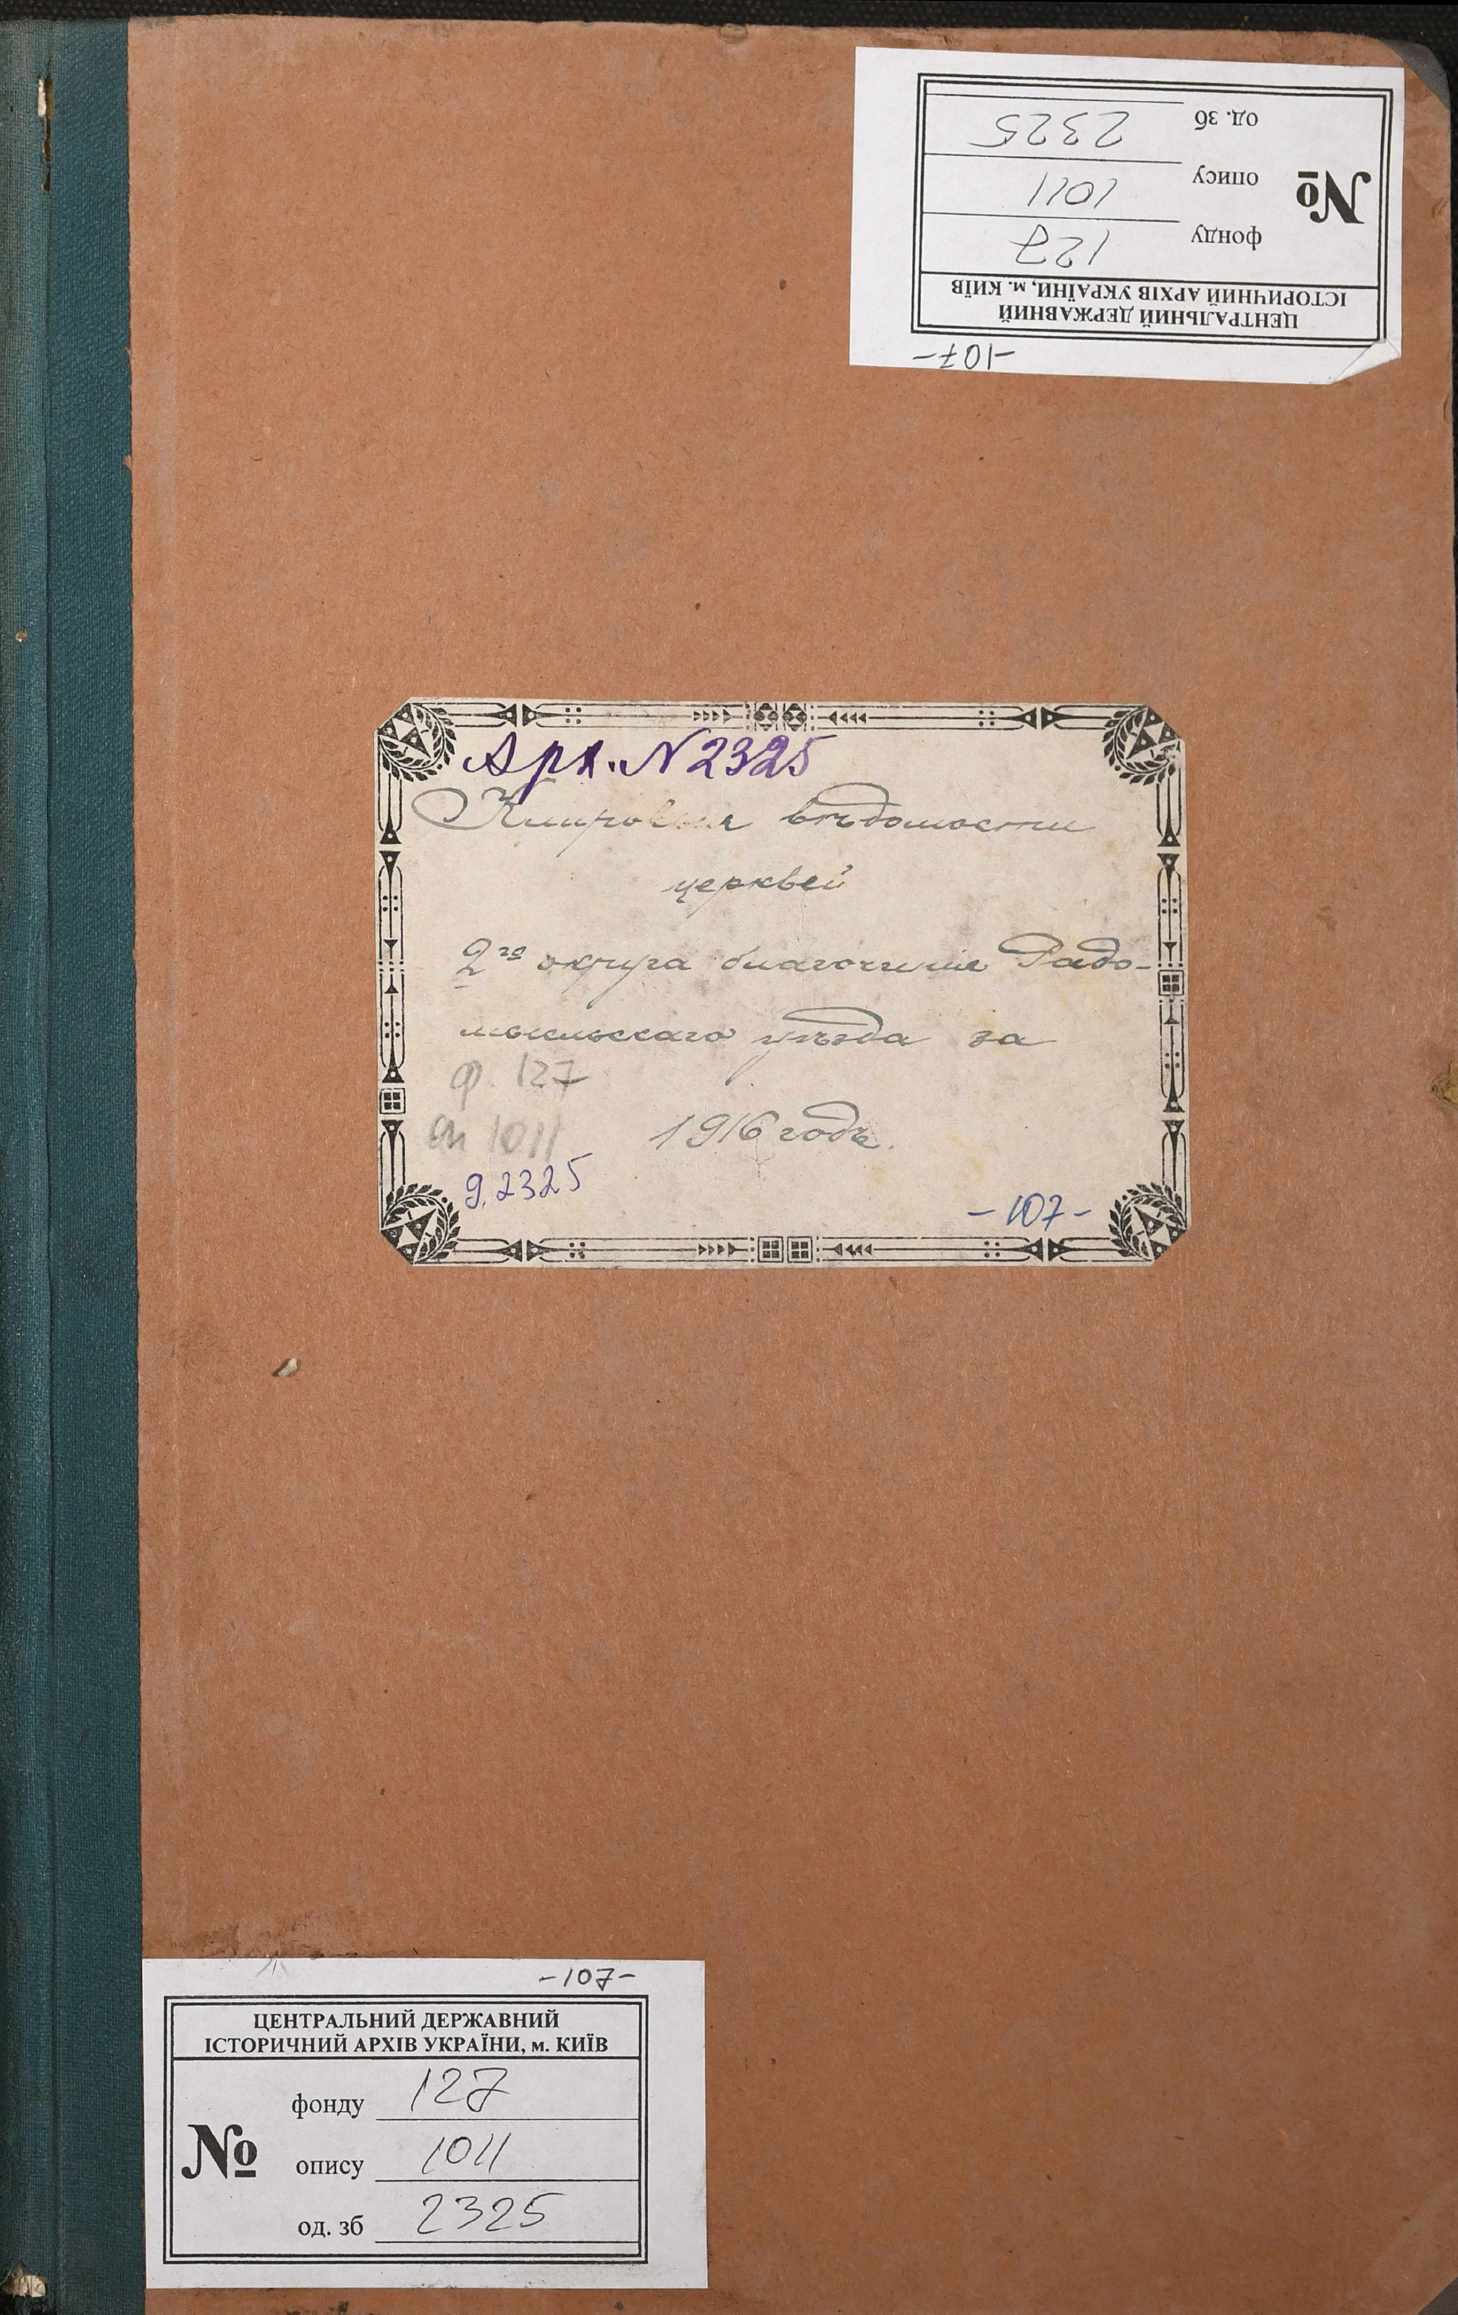 од. зб 2325
опису 1011
№
фонду 127
ЦЕНТРАЛЬНИЙ ДЕРЖАВНИЙ
ІСТОРИЧНИЙ АРХІВ УКРАЇНИ, м. КИЇВ
-107-
Арх. N 2325
Клировыя вѣдомости
церквей
2го округа благочинія Радо-
мысльскаго уѣзда за
ф. 127
оп 1011
1916 годъ.
д. 2325
-107-
-107-
ЦЕНТРАЛЬНИЙ ДЕРЖАВНИЙ
ІСТОРИЧНИЙ АРХІВ УКРАЇНИ, м. КИЇВ
фонду 127
№
опису 1011
од. зб 2325